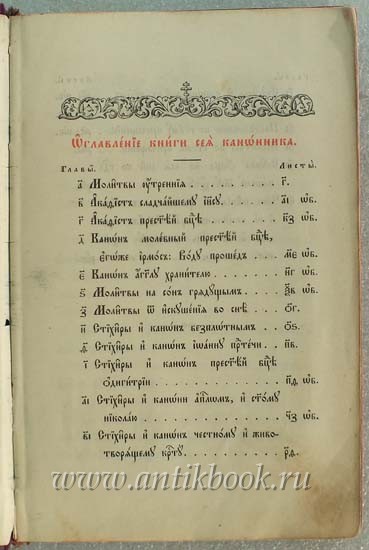 Ѡ҆главле́нїе кни́ги сеѧ̀ канѡ́нника.
Главы̀. Листы̀.
а҃ Моли̑твы ᲂу҆́трєннїѧ . . . . . . . . . г҃.
в҃ А҆ка́ѳїстъ сладча́йшему і҆и҃су . . . . а҃і ѡ҆б.
г҃ А҆ка́ѳїстъ прест҃ѣ́й бцⷣѣ . . . . . . к҃з ѡ҆б.
д҃ Канѡ́нъ моле́бный прест҃ѣ́й бцⷣѣ,
є҆гѡ́же і҆рмо́съ: Во́дꙋ проше́дъ . . . м҃е ѡ҆б.
є҃ Канѡ́нъ а҆́гг҃лꙋ храни́телю . . . . . н҃г ѡ҆б.
ѕ҃ Моли̑твы на со́нъ грѧдꙋ́щымъ . . . . ѯ҃в ѡ҆б.
з҃ Моли̑твы ѿ и҆скꙋше́нїѧ во снѣ̀ . . . ѻ҃г.
и҃ Стїхи̑ры и҆ канѡ́нъ безплѡ́тнымъ . . ѻ҃ѕ.
ѳ҃ Стїхи̑ры и҆ канѡ́нъ і҆ѡа́ннꙋ прⷣте́чи . . п҃в.
і҃ Стїхи̑ры и҆ канѡ́нъ прест҃ѣ́й бцⷣѣ
ѻ҆диги́трїи . . . . . . . . . . . . п҃д ѡ҆б.
а҃і Стїхи̑ры и҆ канѡ́ни а҆пⷭ҇лѡмъ, и҆ ст҃о́мꙋ
нїкола́ю . . . . . . . . . . . . . ч҃з ѡ҆б.
в҃і Стїхи̑ры и҆ канѡ́нъ честно́мꙋ и҆ живо-
творѧ́щемꙋ крⷭ҇тꙋ̀ . . . . . . . . . р҃д.
www.antikbook.ru